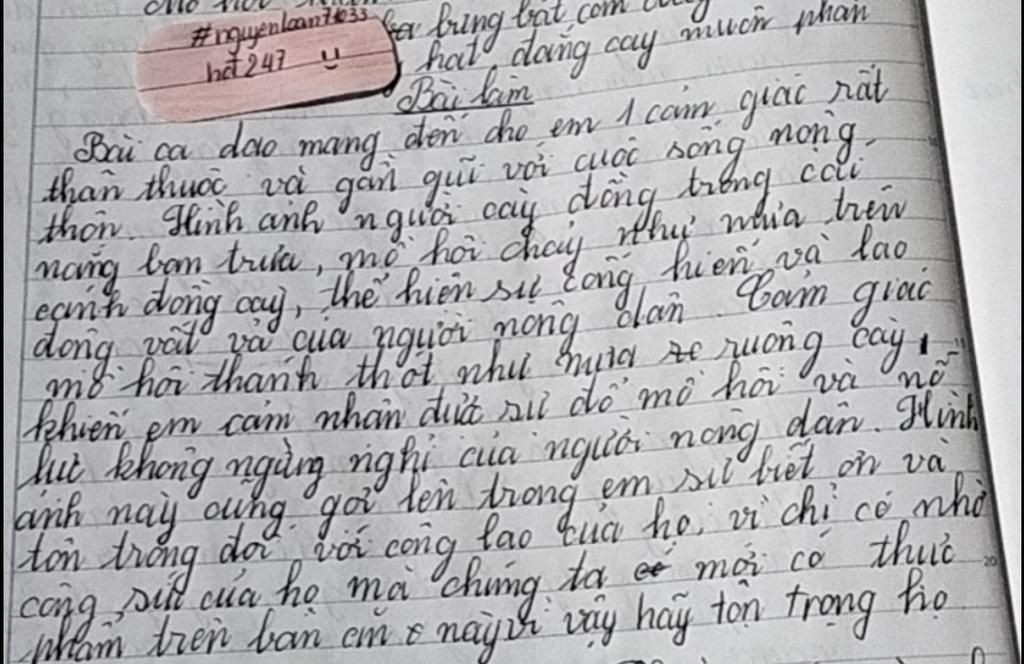 #nguyenloan7633
hđ 247
bưng bát cơm
hạt, đắng cay muôn phần
Bài làm
Bài ca dao mang đến cho em 1 cảm giác rất
thân thuộc và gần gũi với cuộc sống nông
thôn. Hình ảnh người cày đồng trong cái
nắng ban trưa, mồ hôi chảy như mưa trên
cánh đồng cày, thể hiện sự cống hiến và lao
động vất vả của người nông dân. Cảm giác
mồ hôi thánh thót như mưa ruộng cày,
khiến em cảm nhận được sự đổ mồ hôi và nỗ
lực không ngừng nghỉ của người nông dân. Hình
ảnh này cũng gợi lên trong em sự biết ơn và
tôn trọng đối với công lao của họ, vì chỉ có nhờ
công sức của họ mà chúng ta mới có thực
phẩm trên bàn ăn này vì vậy hãy tôn trọng họ